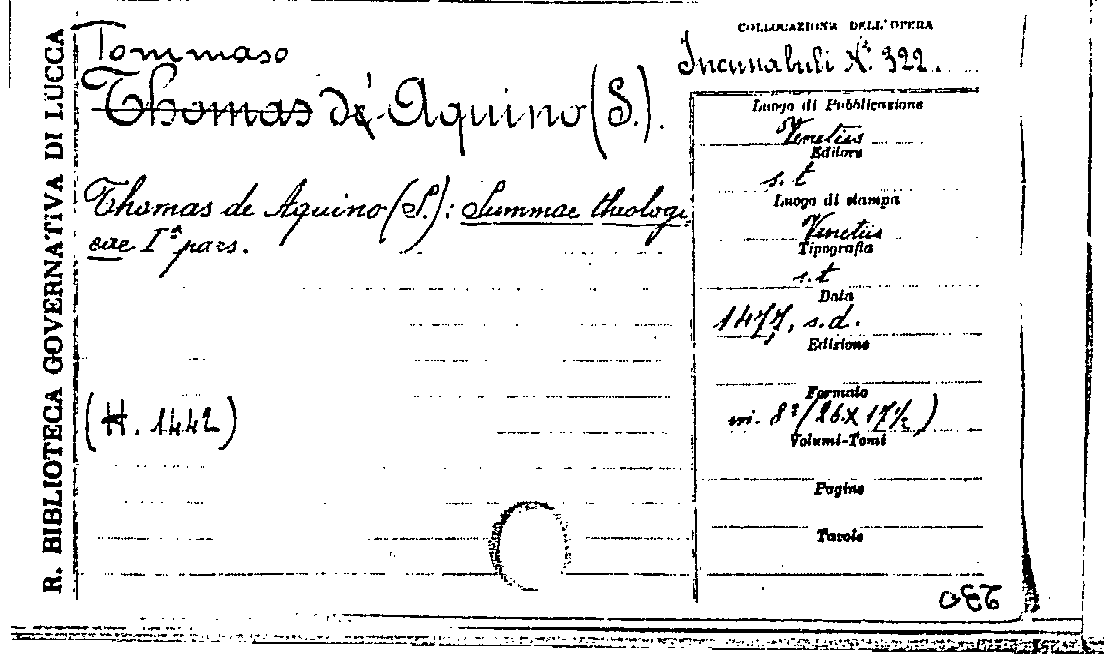 R. BIBLIOTECA GOVERNATIVA DI LUCCA
Tommaso
Thomas de Aquino (S.).
Thomas de Aquino (S.): Summae theologi
cae Iª pars.
(H. 1442)
COLLOCAZIONE DELL'OPERA
Incunabuli Nº 322.
Luogo di Pubblicazione
Venetiis
Editore
s. t
Luogo di stampa
Venetiis
Tipografia
s. t
Data
1477, s. d.
Edizione
Formato
in. 8º (26 X 17½)
Volumi-Tomi
Pagine
Tavole